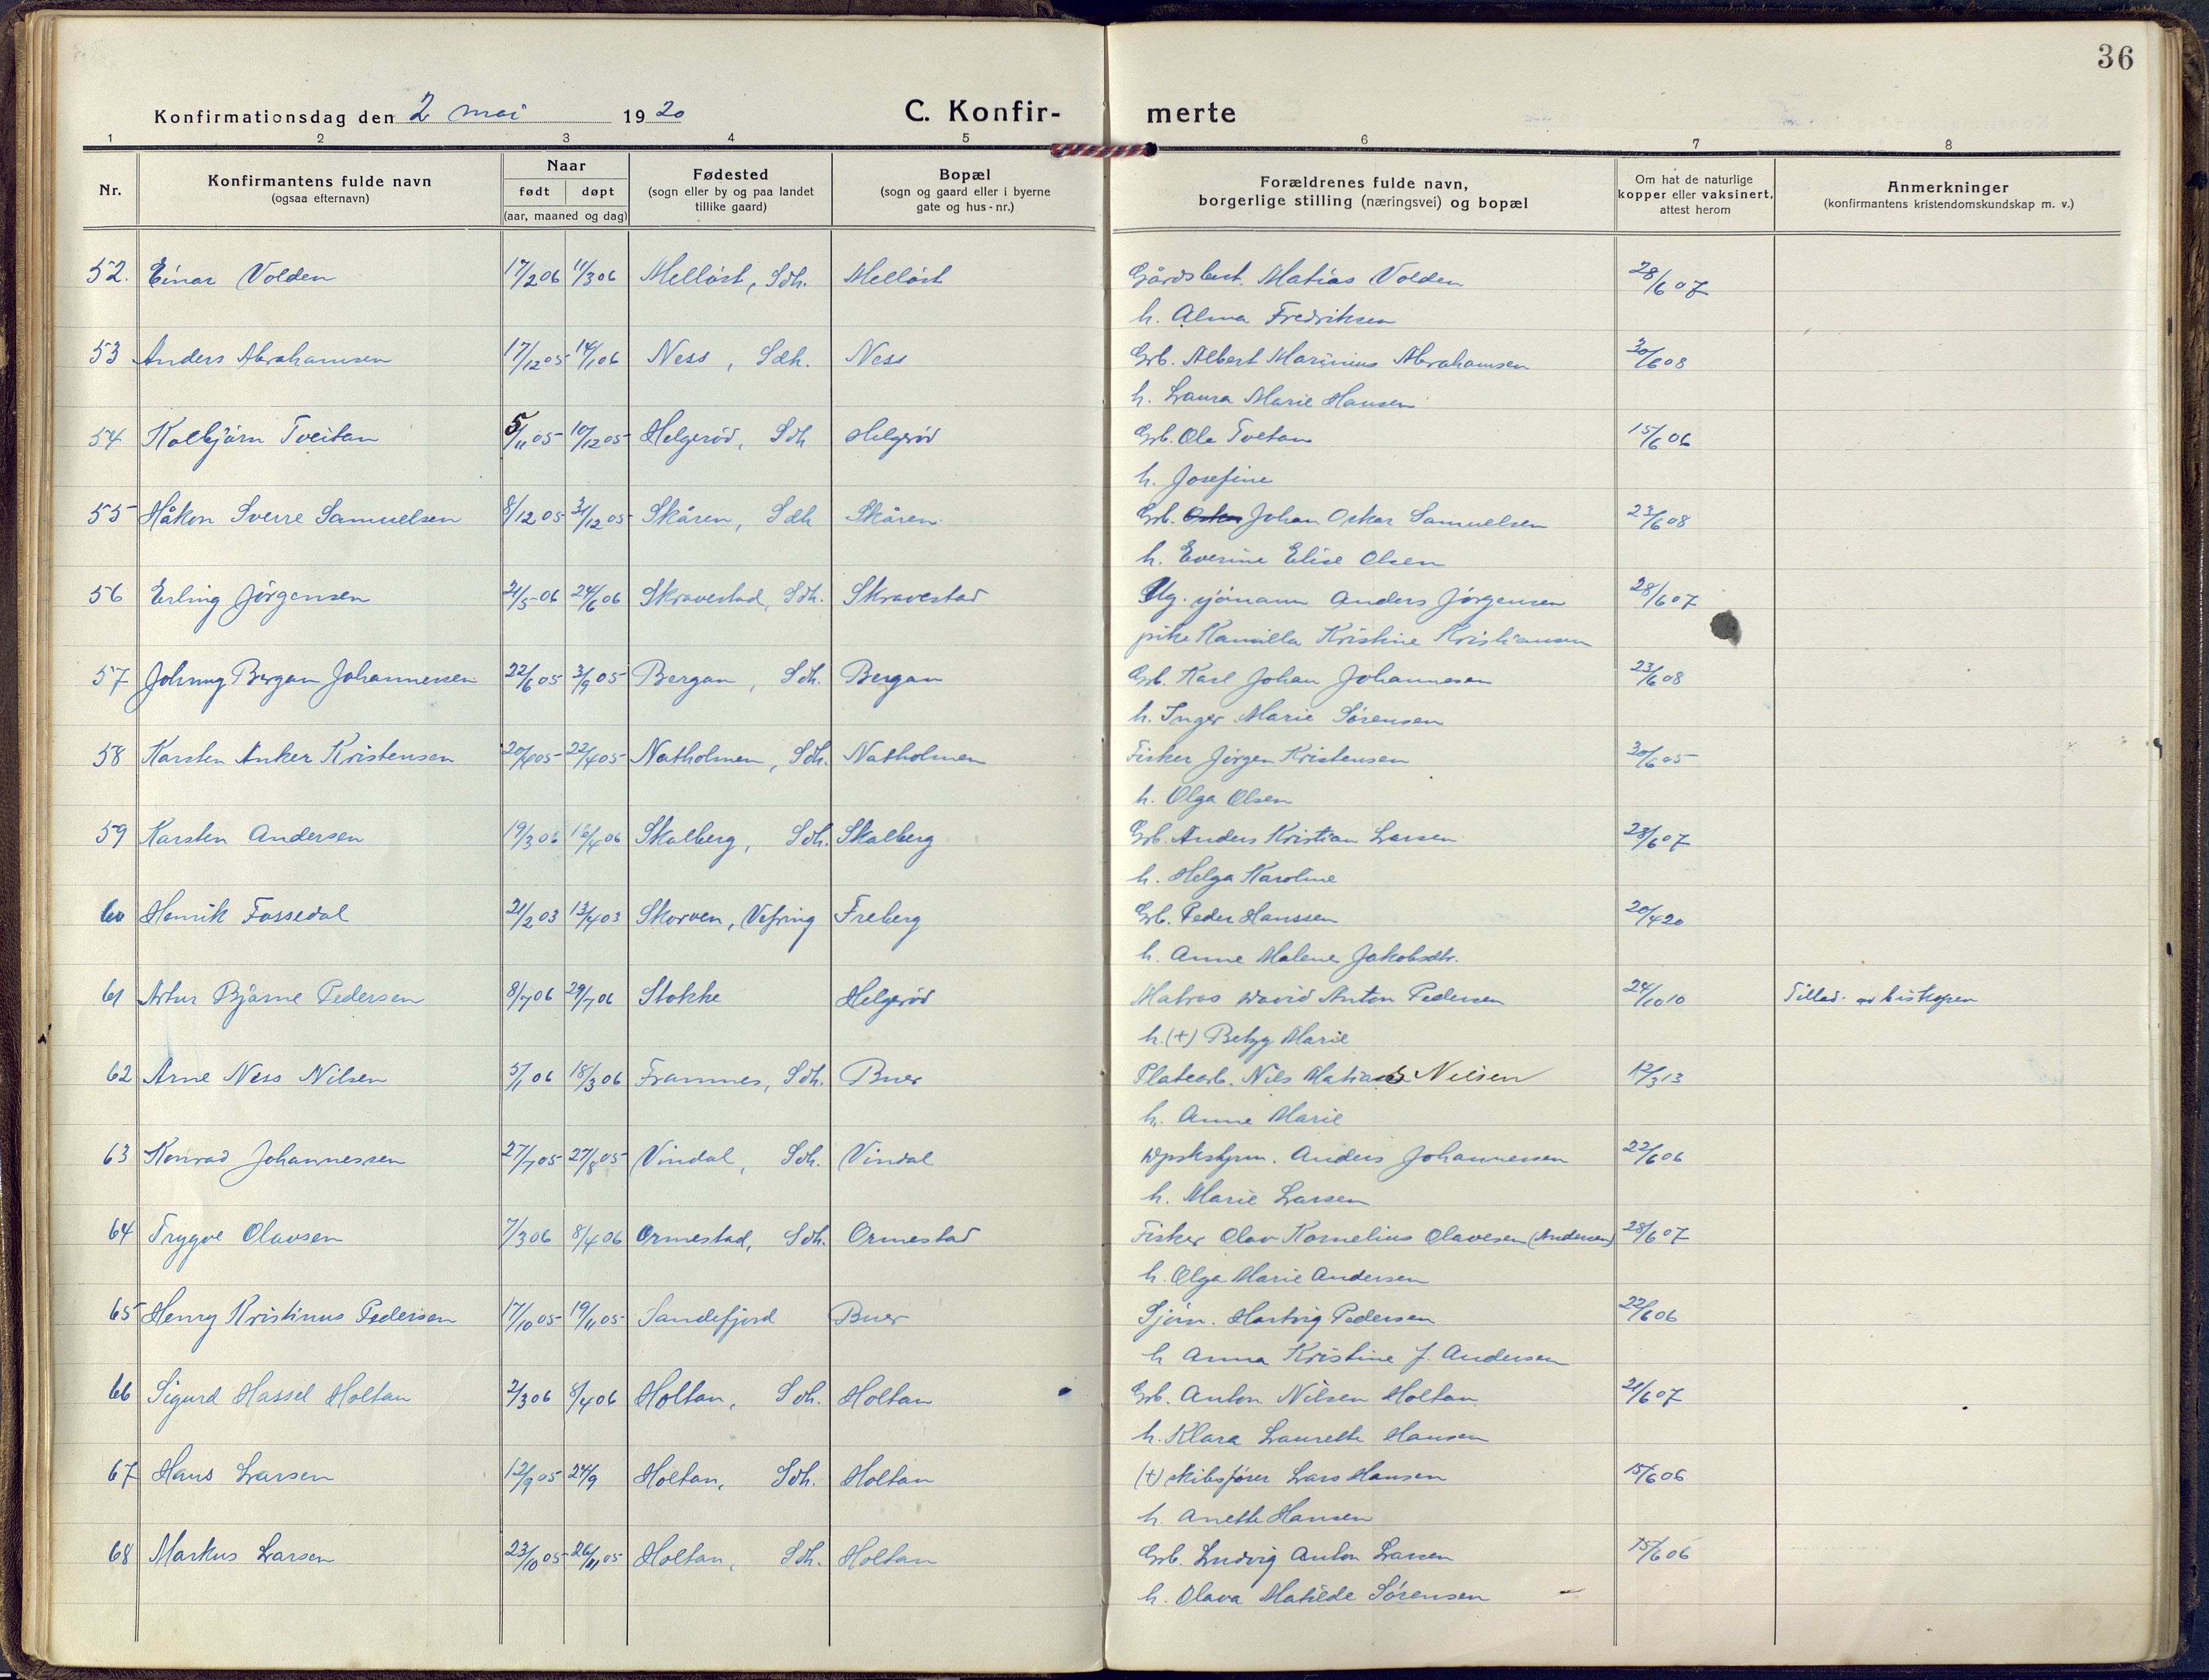 36
Konfirmationsdag den 2 mai 1920
C. Konfir- merte
1 2 3 4 5 6 7 8
Nr.
Konfirmantens fulde navn
(ogsaa efternavn)
Naar
født døpt
(aar, maaned og dag)
Fødested
(sogn eller by og paa landet
tillike gaard)
Bopæl
(sogn og gaard eller i byerne
gate og hus-nr.)
Forældrenes fulde navn,
borgerlige stilling (næringsvei) og bopæl
Om hat de naturlige
kopper eller vaksinert,
attest herom
Anmerkninger
(konfirmantens kristendomskundskap m. v.)
52. Einar Volden 17/2 06 11/3 06 Melløst, Sdh. Melløst Gårdsbest. Matias Volden 28/6 07
h. Alma Fredriksen
53 Anders Abrahamsen 17/12 05 14/1 06 Ness, Sdh. Ness Grb. Albert Marinius Abrahamsen 30/6 08
h. Laura Marie Hansen
54 Kolbjørn Tveitan 5/11 05 10/12 05 Helgerød, Sdh Helgerød Grb. Ole Tvetan 15/6 06
h. Josefine
55 Håkon Sverre Samuelsen 8/12 05 31/12 05 Skåren, Sdh Skåren Grb. Oskar Johan Oskar Samuelsen 23/6 08
h. Everine Elise Olsen
56 Erling Jørgensen 21/5 06 24/6 06 Skravestad, Sdh. Skravestad Ug. sjømann Anders Jørgensen 28/6 07
pike Kamilla Kristine Kristiansen
57 Johnny Bergan Johannessen 22/6 05 3/9 05 Bergan, Sdh. Bergan Grb. Karl Johan Johannesen 23/6 08
h. Inger Marie Sørensen
58 Karsten Anker Kristensen 20/4 05 22/4 05 Natholmen, Sdh. Natholmen Fisker Jørgen Kristensen 30/6 05
h. Olga Olsen
59 Karsten Andersen 19/3 06 16/4 06 Skalberg, Sdh. Skalberg Grb. Anders Kristian Larsen 28/6 07
h. Helga Karoline
60 Henrik Fossedal 21/2 03 13/4 03 Skorven, Vefring Freberg Grb. Peder Hanssen 20/4 20
h. Anne Malene Jakobsdtr.
61 Artur Bjarne Pedersen 8/7 06 29/7 06 Stokke Helgerød Matros David Anton Pedersen 24/10 10 Tillad. av biskopen
h. (+) Betzy Marie
62 Arne Ness Nilsen 5/1 06 18/3 06 Framnes, Sdh. Buer Platearb. Nils Matias Nilsen 12/3 13
h. Anne Marie
63 Konrad Johannessen 27/7 05 27/8 05 Vindal, Sdh. Vindal Anders Johannessen 22/6 06
h. Marie Larsen
64 Trygve Olavsen 7/3 06 8/4 06 Ormestad, Sdh. Ormestad Fisker Olav Kornelius Olavesen (Andersen) 28/6 07
h. Olga Marie Andersen
65 Henry Kristinus Pedersen 17/10 05 19/11 05 Sandefjord Buer Sjøm. Hartvig Pedersen 22/6 06
h Anna Kristine J. Andersen
66 Sigurd Hassel Holtan 2/3 06 8/4 06 Holtan, Sdh. Holtan Grb. Anton Nilsen Holtan 21/6 07
h. Klara Laurette Hansen
67 Hans Larsen 12/9 05 24/9 Holtan, Sdh. Holtan (+) skibsfører Lars Hansen 15/6 06
h. Anette Hansen
68 Markus Larsen 23/10 05 26/11 05 Holtan, Sdh. Holtan Grb. Ludvig Anton Larsen 15/6 06
h. Olava Matilde Sørensen